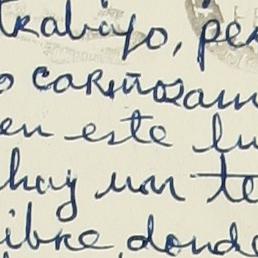 trabajo, per
o cariñosam
en este lu
hay un te
ibre donde